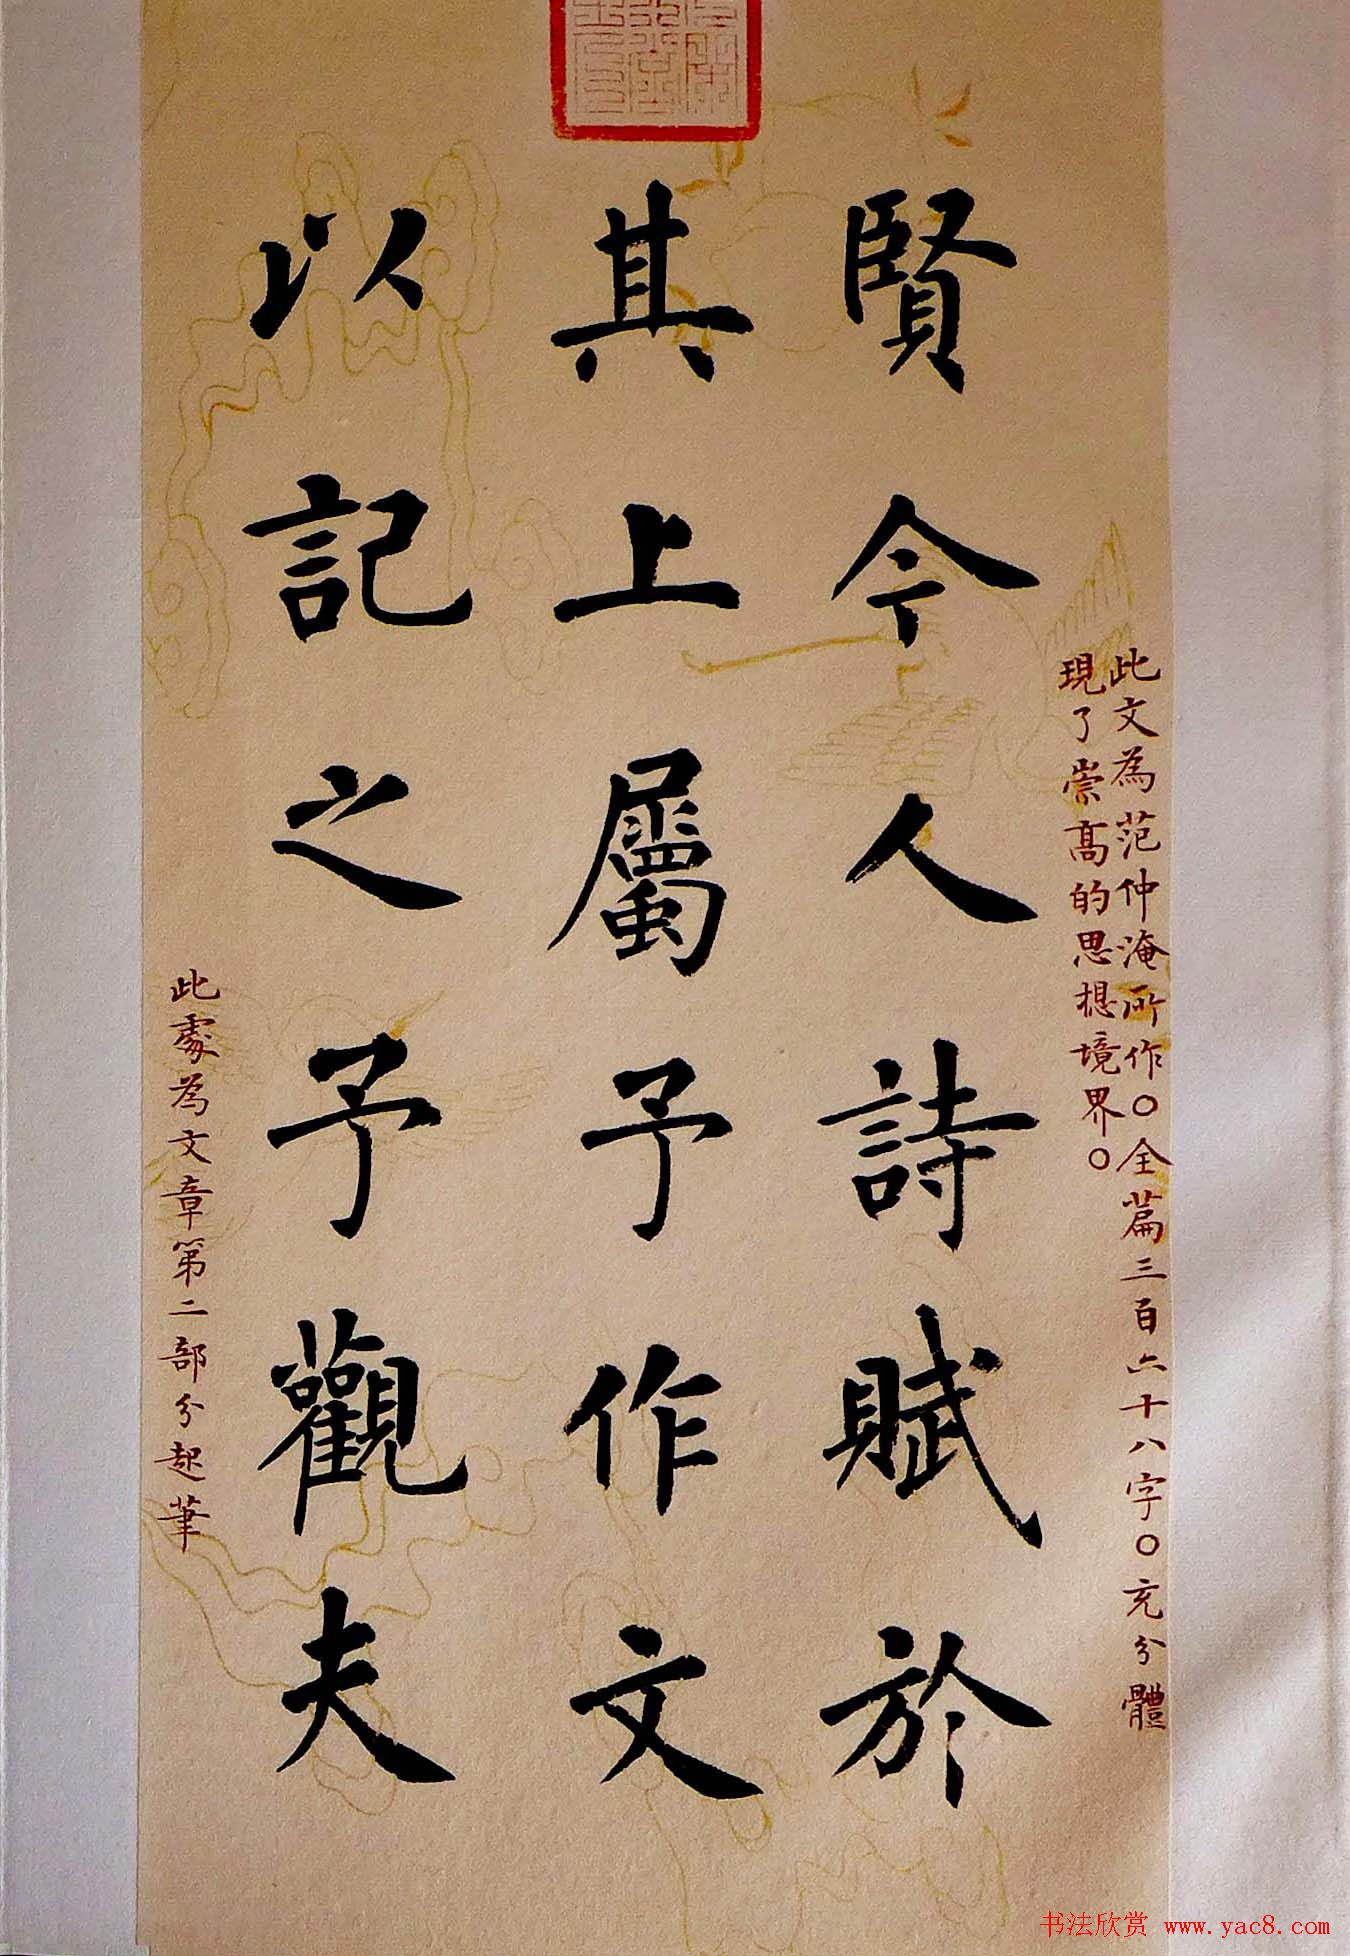 此文為范仲淹所作○全篇三百六十八字○充分體
現了崇高的思想境界○
賢今人詩賦於
其上屬予作文
以記之予觀夫
此處為文章第二部分起筆
书法欣赏 www.yac8.com